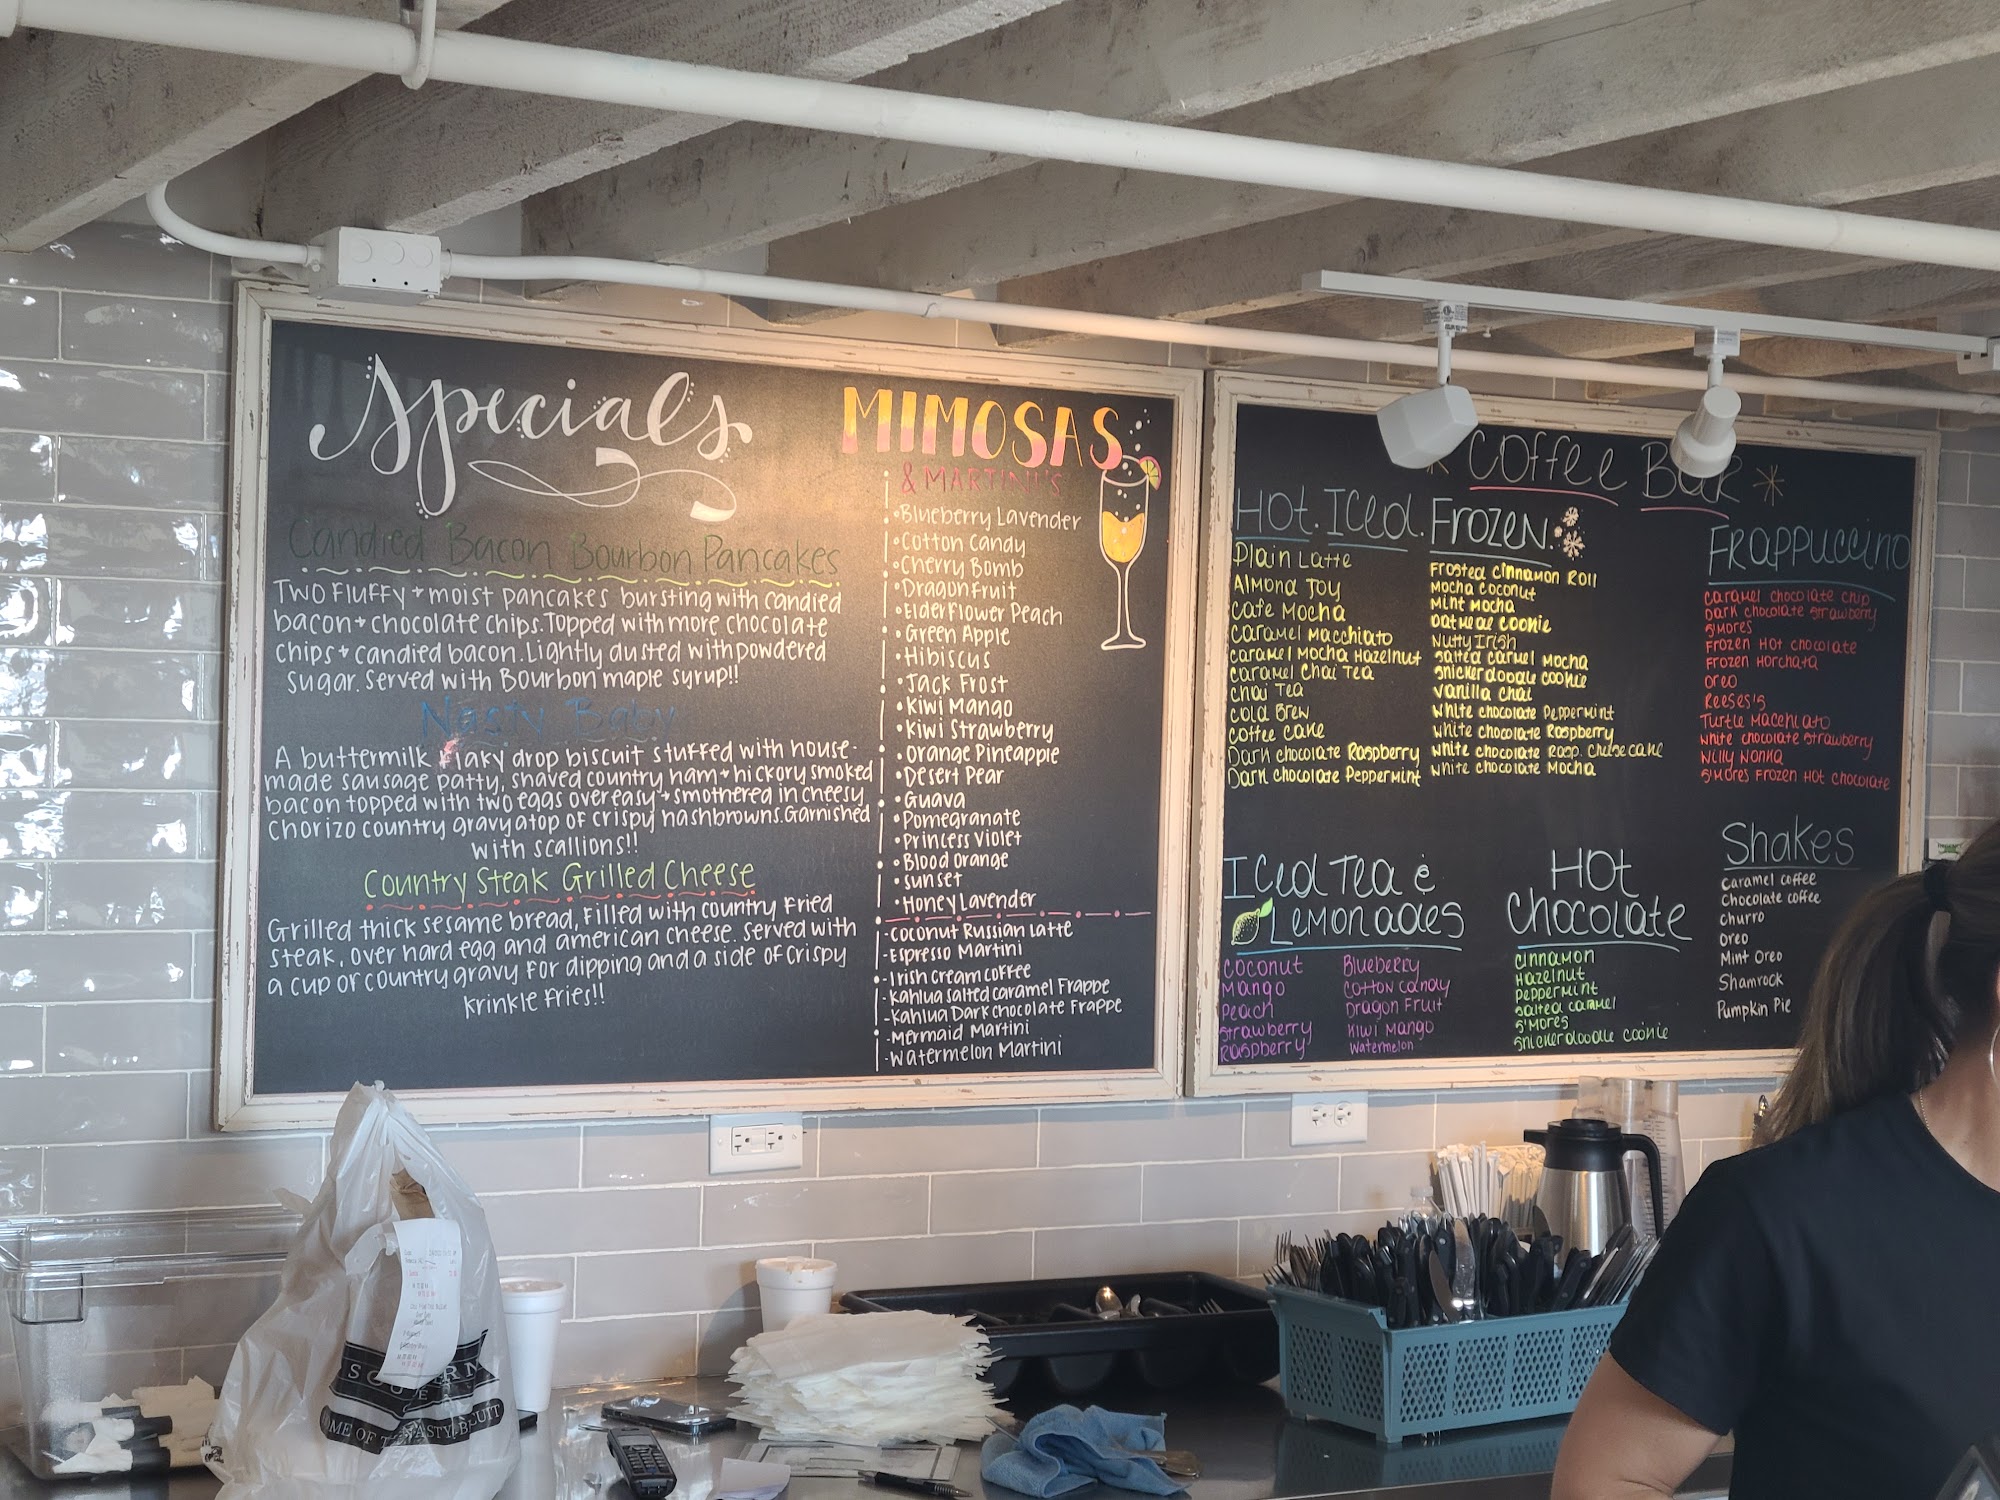 Specials
Candied Bacon Bourbon Pancakes
Two Fluffy + moist pancakes bursting with candied
bacon + chocolate chips. Topped with more chocolate
chips + candied bacon. Lightly dusted with powdered
sugar. Served with Bourbon maple syrup!!
Nasty Baby
A buttermilk flaky drop biscuit stuffed with house-
made sausage patty, shaved country ham + hickory smoked
bacon topped with two eggs over easy + smothered in cheesy
chorizo country gravy atop of crispy hashbrowns. Garnished
with scallions!!
Country Steak Grilled Cheese
Grilled thick sesame bread, filled with country fried
steak, over hard egg and american cheese. Served with
a cup of country gravy for dipping and a side of crispy
krinkle fries!!
MIMOSAS
& MARTINI'S
•Blueberry Lavender
•Cotton Candy
•Cherry Bomb
•Dragonfruit
•Elderflower Peach
•Green Apple
•Hibiscus
•Jack Frost
•Kiwi Mango
•Kiwi Strawberry
•Orange Pineapple
•Desert Pear
•Guava
•Pomegranate
•Princess Violet
•Blood Orange
•Sunset
•Honey Lavender
-Coconut Russian Latte
-Espresso Martini
-Irish cream coffee
-Kahlua salted caramel Frappe
-Kahlua Dark chocolate Frappe
-Mermaid Martini
-Watermelon Martini
Coffee Bar
Hot. Iced. Frozen.
Plain Latte
Almond Joy
Cafe Mocha
Caramel Macchiato
Caramel Mocha Hazelnut
Caramel Chai Tea
Chai Tea
Cold Brew
Coffee Cake
Dark chocolate Raspberry
Dark chocolate Peppermint
Frosted Cinnamon Roll
Mocha Coconut
Mint Mocha
Oatmeal Cookie
Nutty Irish
Salted Carmel Mocha
Snickerdoodle Cookie
Vanilla Chai
White chocolate Peppermint
White chocolate Raspberry
White chocolate Rasp. Cheesecake
White chocolate Mocha
Frappuccino
Caramel chocolate chip
Dark chocolate strawberry
S'mores
Frozen Hot chocolate
Frozen Horchata
Oreo
Reeses's
Turtle Macchiato
White chocolate strawberry
Willy Wonka
S'mores Frozen Hot chocolate
Iced Tea &
Lemonades
Coconut
Mango
Peach
Strawberry
Raspberry
Blueberry
Cotton Candy
Dragon Fruit
Kiwi Mango
Watermelon
Hot
Chocolate
Cinnamon
Hazelnut
Peppermint
Salted caramel
S'mores
Snickerdoodle cookie
Shakes
Caramel coffee
Chocolate coffee
Churro
Oreo
Mint Oreo
Shamrock
Pumpkin Pie